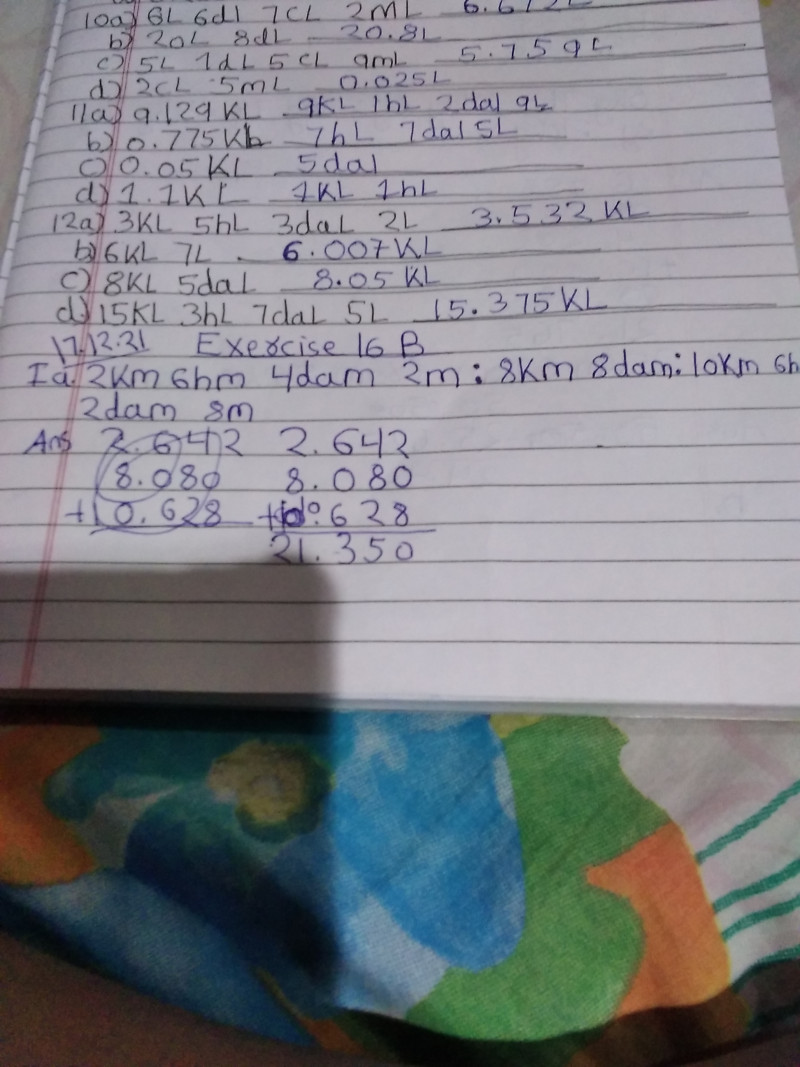 10a) 6L 6dl 7CL 2mL 6.672L
b) 20L 8dL 20.8L
c) 5L 7dL 5CL 9mL 5.759L
d) 2CL 5mL 0.025L
11a) 9.129KL 9KL 1hL 2dal 9L
b) 0.775KL 7hL 7dal 5L
c) 0.05KL 5dal
d) 1.1KL 1KL 1hL
12a) 3KL 5hL 3daL 2L 3.532KL
b) 6KL 7L 6.007KL
c) 8KL 5daL 8.05KL
d) 15KL 3hL 7daL 5L 15.375KL
17.12.21 Exercise 16 B
Ia. 2Km 6hm 4dam 2m; 8Km 8dam; 10Km 6h
2dam 8m
Ans 2.642 2.642
8.080 8.080
+10.628 +10.628
21.350